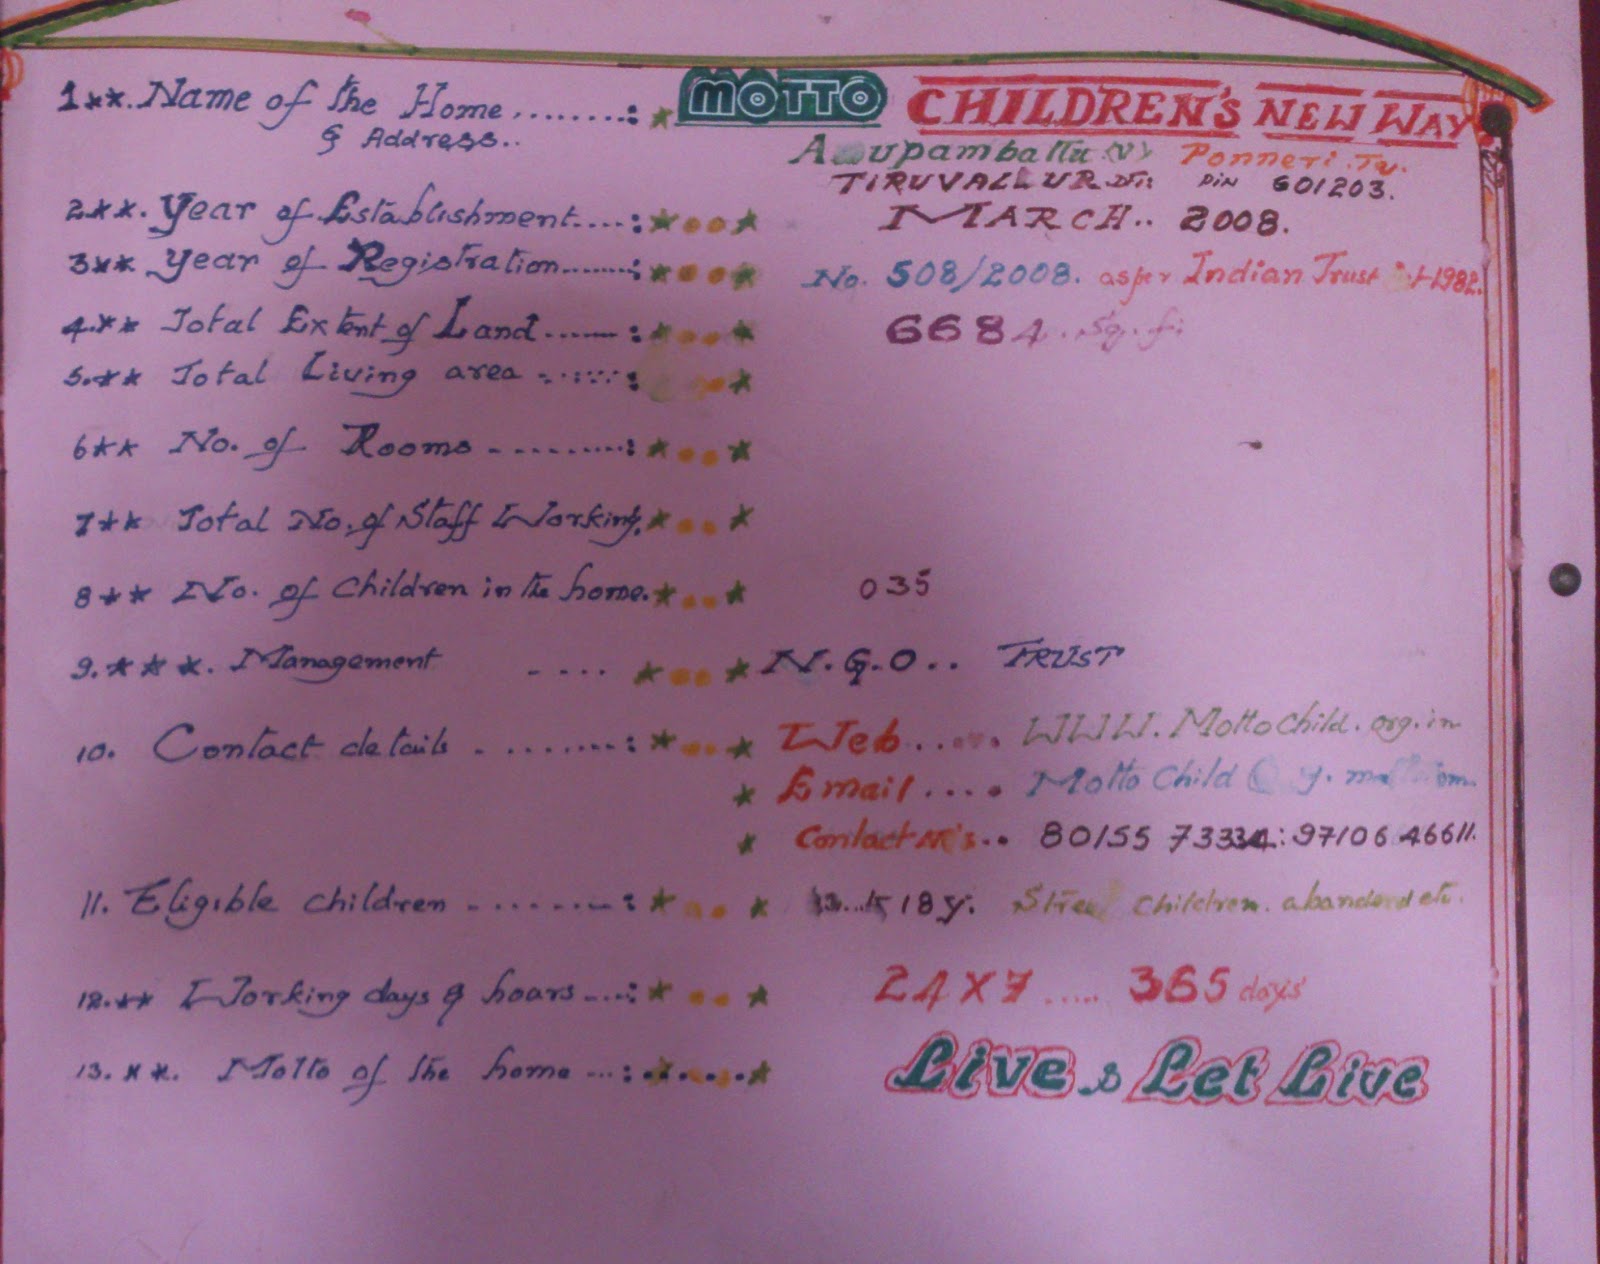 1**. Name of the Home ........: * MOTTO CHILDREN'S NEW WAY
& Address..
Ponneri. Tq.
TIRUVALLUR Dt: PIN 601203.
2**. Year of Establishment....: * * MARCH.. 2008.
3** Year of Registration.......: * * No. 508/2008. as per Indian Trust 1982.
4.** Total Extent of Land......: * * 6684. Sq. ft
5.** Total Living area ........: *
6** No. of Rooms ..........: * *
7** Total No. of Staff Working. * *
8** No. of Children in the home. * * 035
9. ***. Management .... * * N.G.O.. TRUST
10. Contact details .........: * * Web..... WWW.Mottochild.org.in
* Email..... Motto Child
* Contact No's.. 80155 73334: 97106 46611.
11. Eligible children ........: * * 18 y. Street Children. abandoned etc.
12.** Working days & hours ....: * * 24X7 ..... 365 days
13. **. Motto of the home ...: * * Live & Let Live